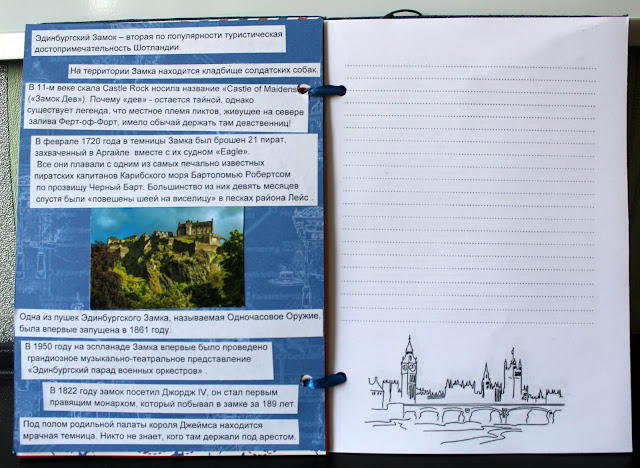 Эдинбургский Замок – вторая по популярности туристическая
достопримечательность Шотландии.
На территории Замка находится кладбище солдатских собак.
В 11-м веке скала Castle Rock носила название «Castle of Maidens»
(«Замок Дев»). Почему «дев» - остается тайной, однако
существует легенда, что местное племя пиктов, живущее на севере
залива Ферт-оф-Форт, имело обычай держать там девственниц!
В феврале 1720 года в темницы Замка был брошен 21 пират,
захваченный в Аргайле вместе с их судном «Eagle».
Все они плавали с одним из самых печально известных
пиратских капитанов Карибского моря Бартоломью Робертсом
по прозвищу Черный Барт. Большинство из них девять месяцев
спустя были «повешены шеей на виселицу» в песках района Лейс .
Одна из пушек Эдинбургского Замка, называемая Одночасовое Оружие,
была впервые запущена в 1861 году.
В 1950 году на эспланаде Замка впервые было проведено
грандиозное музыкально-театральное представление
«Эдинбургский парад военных оркестров» .
В 1822 году замок посетил Джордж IV, он стал первым
правящим монархом, который побывал в замке за 189 лет.
Под полом родильной палаты короля Джеймса находится
мрачная темница. Никто не знает, кого там держали под арестом.